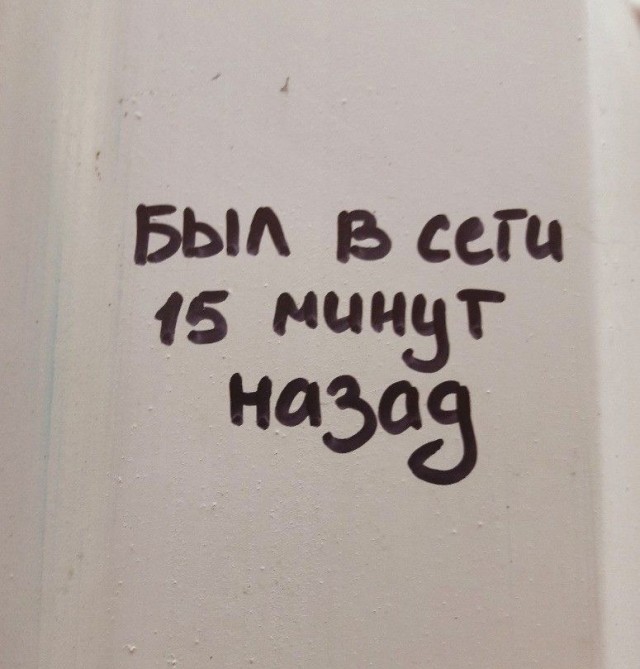 Был в сети
15 минут
назад